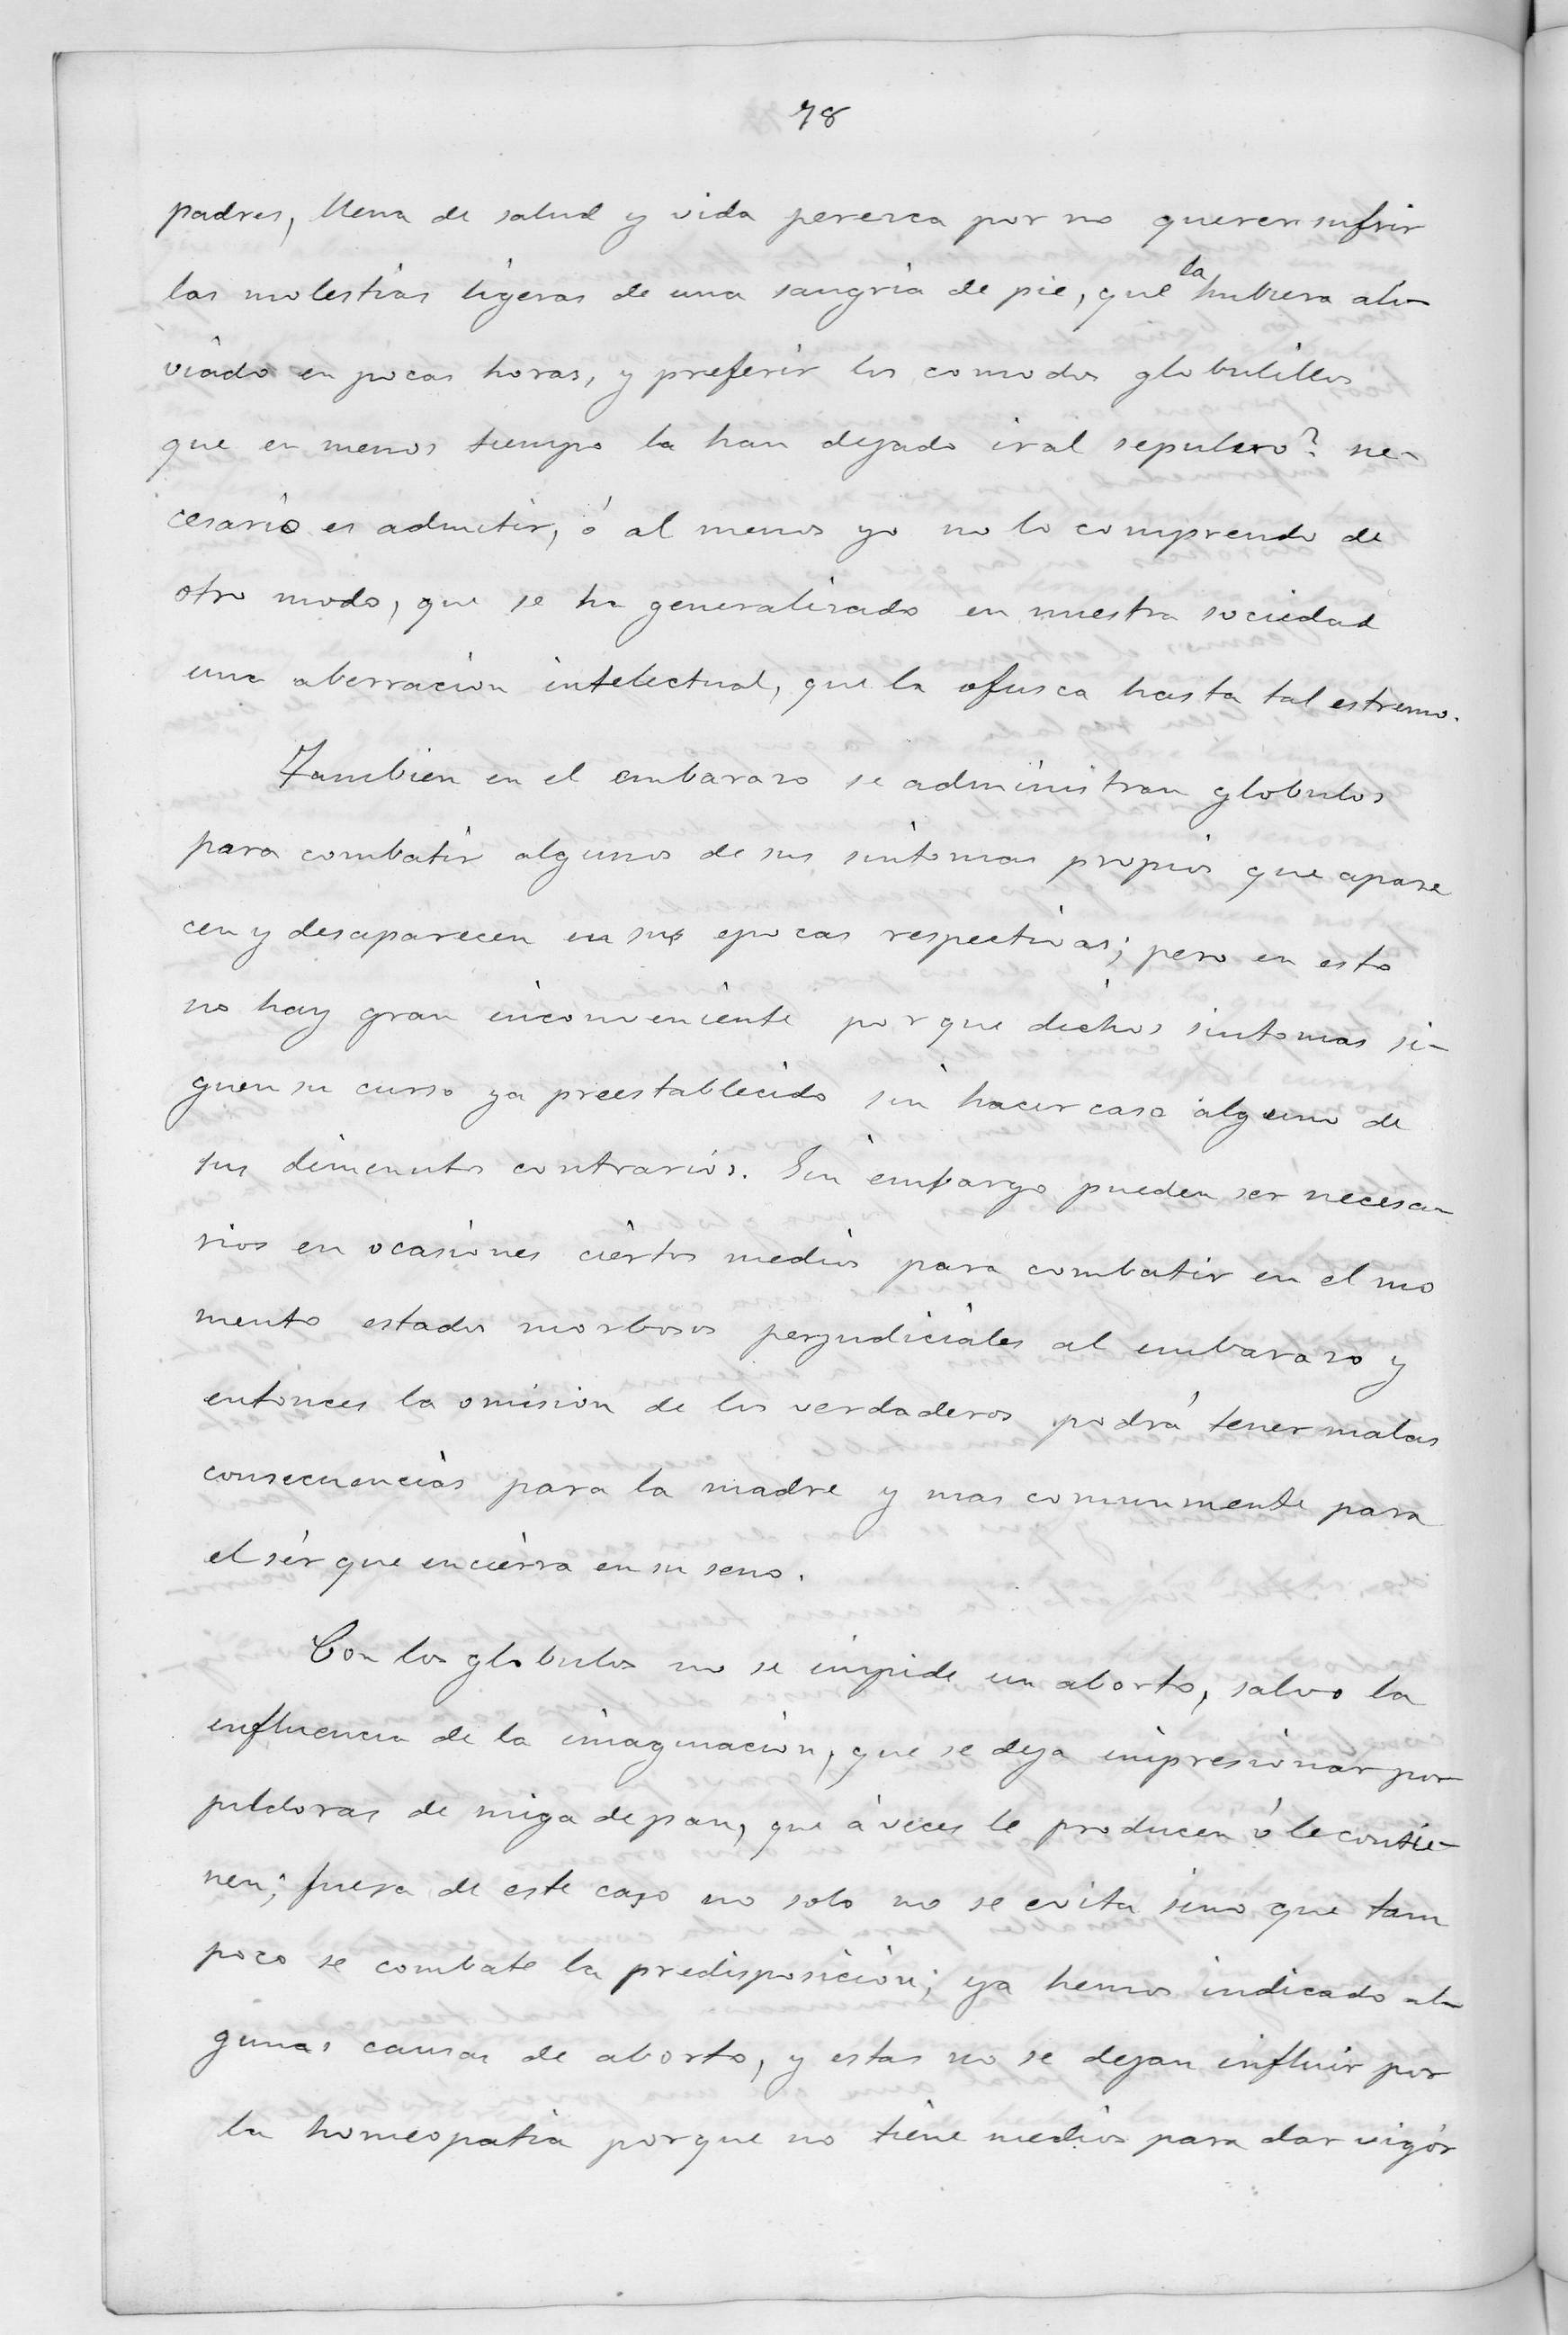 78
padres, llena de salud y vida perezca por no querer sufrir
las molestias ligeras de una sangria de pie, que la hubiera ali-
viado en pocas horas, y preferir los comodos globulillos
que en menos tiempo la han dejado ir al sepulcro? ne-
cesario es admitir, ó al menos yo no lo comprendo de
otro modo, que se ha generalizado en nuestra sociedad
una aberracion intelectual, que la ofusca hasta tal estremo.
Tambien en el embarazo se administran globulos
para combatir algunos de sus sintomas propios que apare
cen y desaparecen en sus epocas respectivas; pero en esto
no hay gran inconveniente por que dichos sintomas si-
guen su curso ya preestablecido sin hacer caso alguno de
sus diminutos contrarios. Sin embargo pueden ser necesa-
rios en ocasiones ciertos medios para combatir en el mo
mento estados morbosos perjudiciales al embarazo y
entonces la omision de los verdaderos podrá tener malas
consecuencias para la madre y mas comunmente para
el sér que encierra en su seno.
Con los globulos no se impide un aborto, salvo la
influencia de la imaginacion, que se deja impresionar por
pildoras de miga de pan, que á veces le producen ó le contie-
nen; fuera de este caso no solo no se evita sino que tam
poco se combate la predisposicion; ya hemos indicado al-
gunas causas de aborto, y estas no se dejan influir por
la homeopatia porque no tiene medios para dar vigór